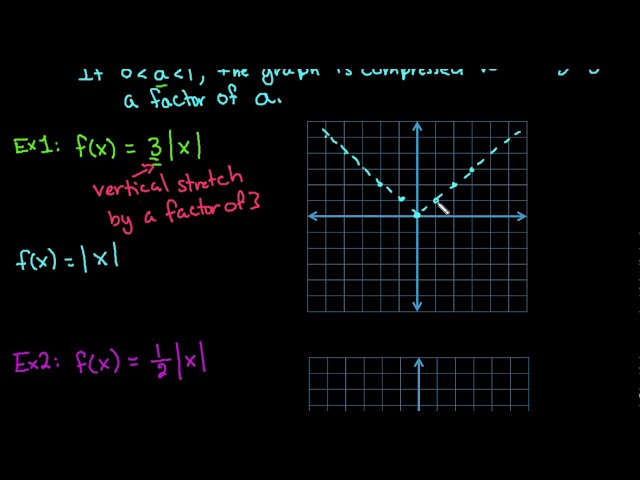 If 0<a<1, the graph is compressed
a factor of a.
Ex1: f(x) = 3|x|
vertical stretch
by a factor of 3
f(x) = |x|
Ex2: f(x) = 1/2 |x|